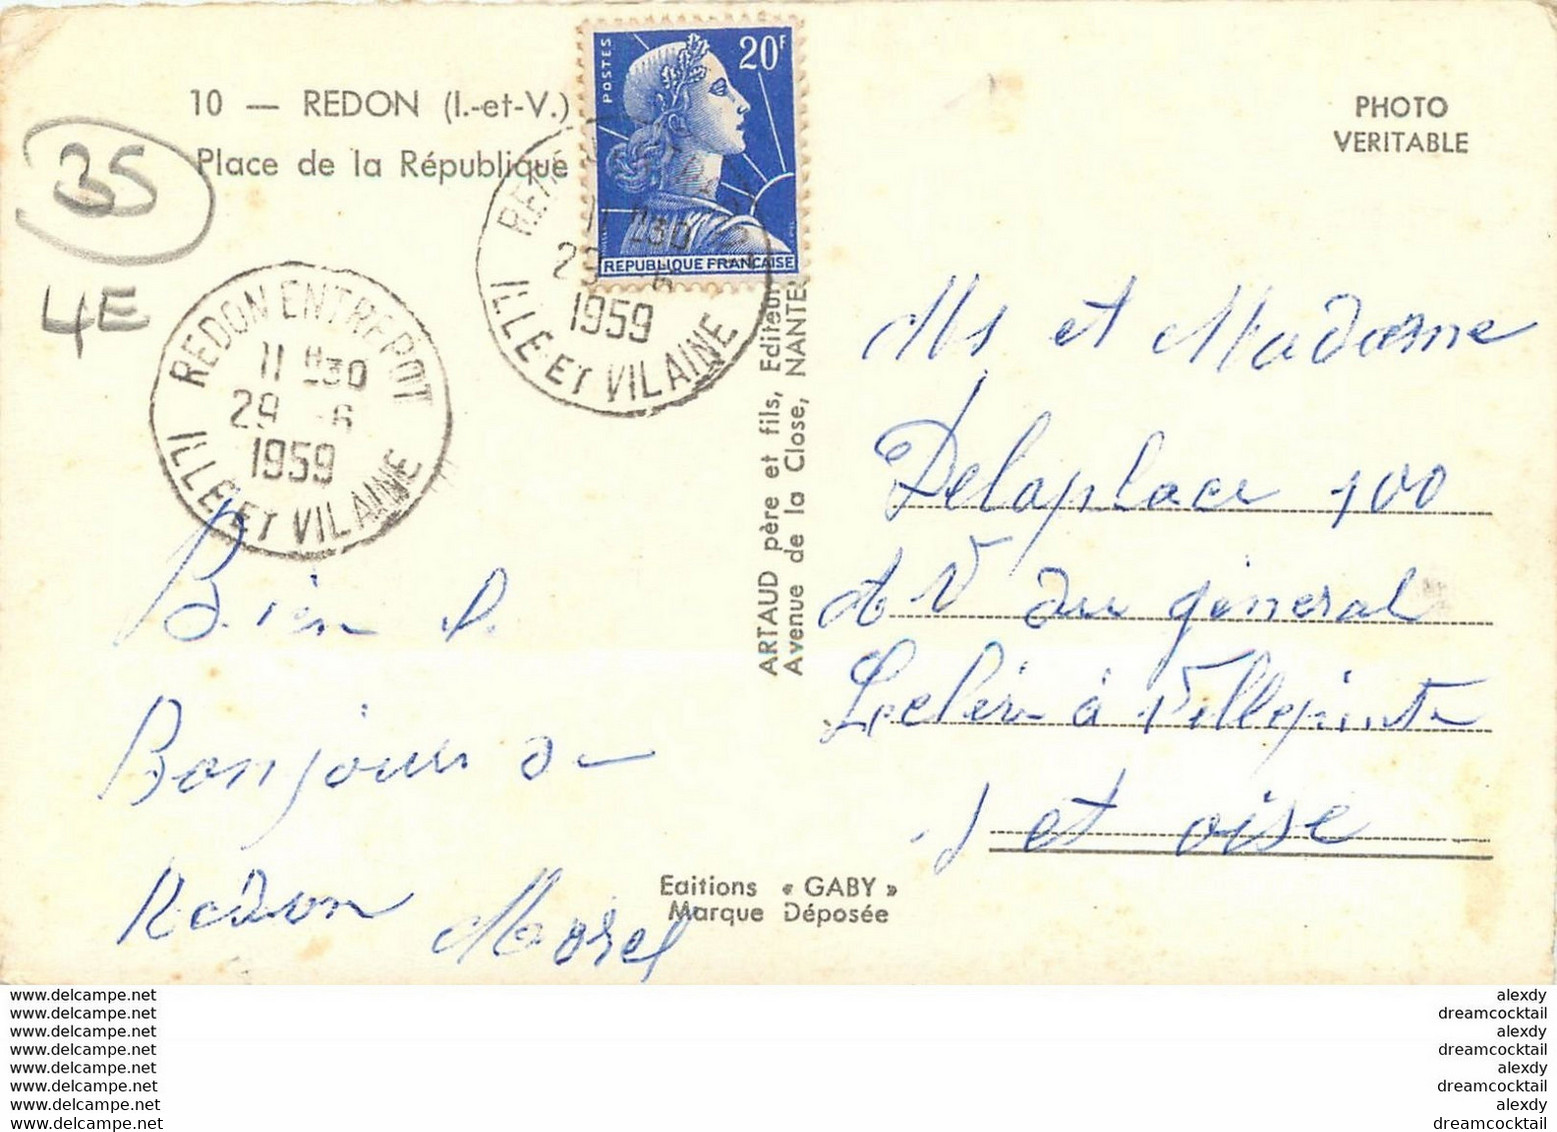 10 — REDON (I.-et-V.)
Place de la République
35
4E
POSTES
20F
REPUBLIQUE FRANÇAISE
PHOTO
VERITABLE
REDON ENTREPOT
11 H30
29 -6
1959
ILLE ET VILAINE
11 H30
29 -6
1959
ILLE ET VILAINE
ARTAUD père et fils, Editeur
Avenue de la Close, NANTES
Bien
Bonjour de
Redon Morel
Ms et Madame
Delaplace 100
AV du général
Leclerc à Villepinte
S et oise
Editions « GABY »
Marque Déposée
www.delcampe.net
www.delcampe.net
www.delcampe.net
www.delcampe.net
www.delcampe.net
www.delcampe.net
www.delcampe.net
www.delcampe.net
alexdy
dreamcocktail
alexdy
dreamcocktail
alexdy
dreamcocktail
alexdy
dreamcocktail